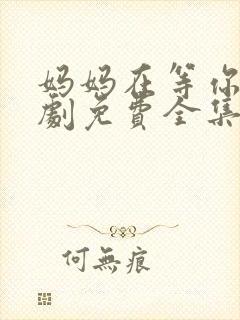 妈妈在等你
劇免費全集
何無痕